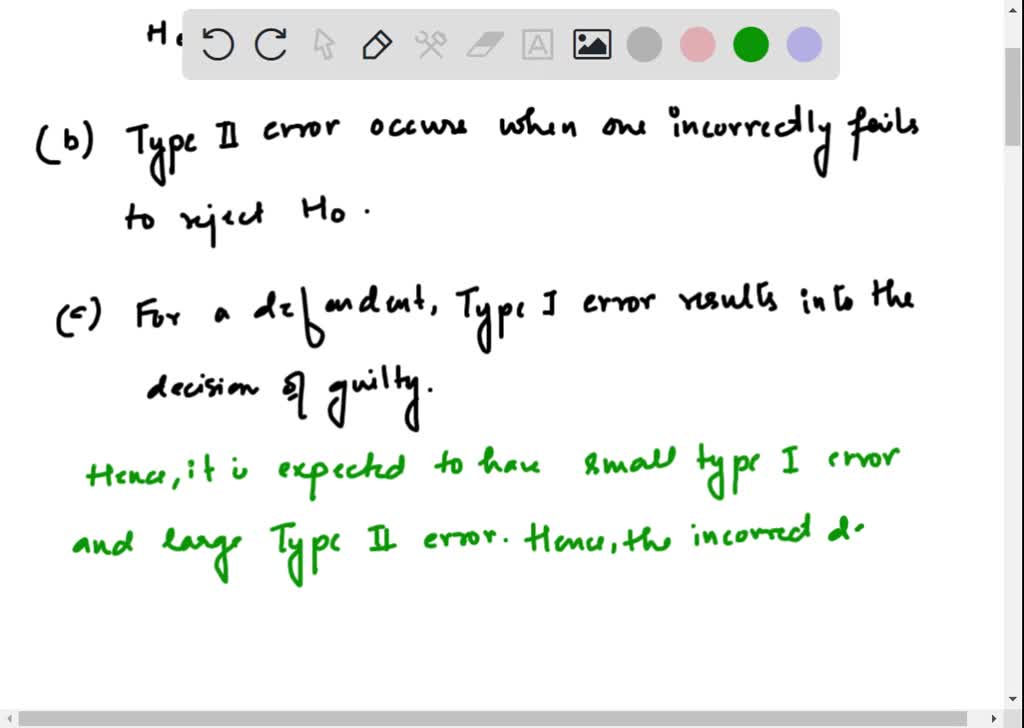 H
(b) Type II error occurs when one incorrectly fails
to reject H0.
(c) For a defendent, Type I error results into the
decision of guilty.
Hence, it is expected to have small type I error
and large Type II error. Hence, the incorrect d